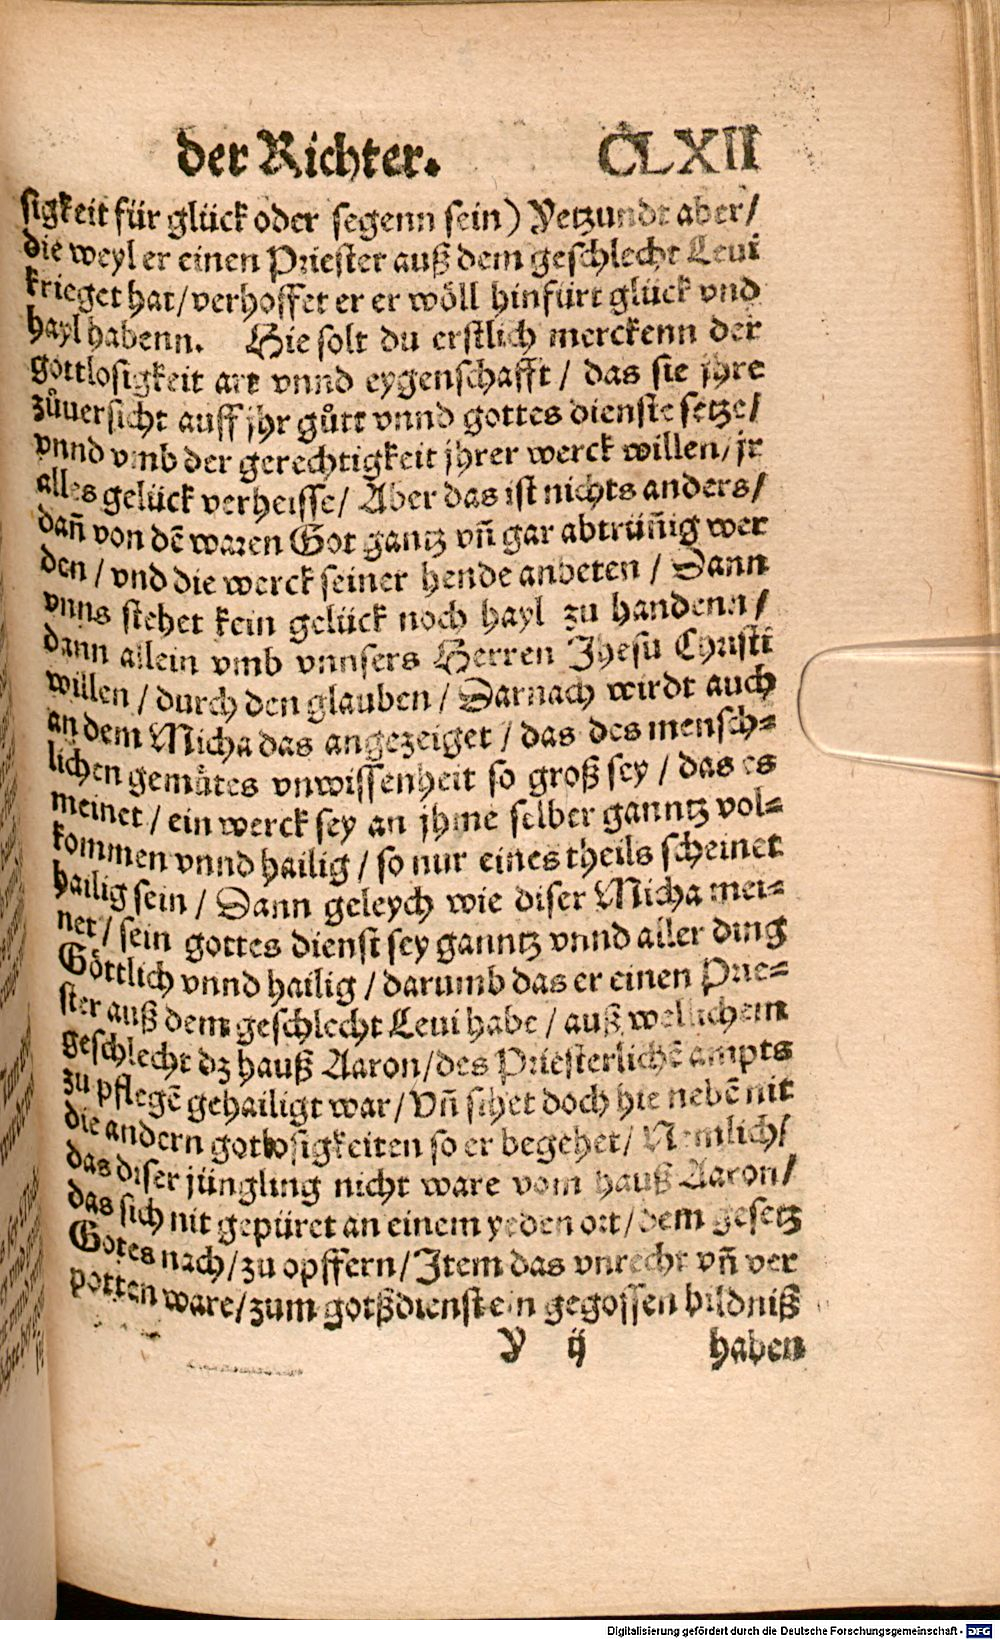 der Richter. CLXII
sigkeit für glück oder segenn sein) Yetzundt aber/
die weyl er einen Priester auß dem geschlecht Leui
krieget hat/ verhoffet er er wöll hinfürt glück vnd
hayl habenn. Hie solt du erstlich merckenn der
gottlosigkeit art vnnd eygenschafft / das sie jhre
zůuersicht auff jhr gůtt vnnd gottes dienste setze/
vnnd vmb der gerechtigkeit jhrer werck willen/ jr
alles gelück verheisse/ Aber das ist nichts anders/
dañ von dē waren Got gantz vñ gar abtrüñig wer
den / vnd die werck seiner hende anbeten / Dann
vnns stehet kein gelück noch hayl zu handenn /
dann allein vmb vnnsers Herren Jhesu Christi
willen / durch den glauben / Darnach wirdt auch
an dem Micha das angezeiget / das des mensch-
lichen gemütes vnwissenheit so groß sey / das es
meinet / ein werck sey an jhme selber ganntz vol-
kommen vnnd hailig / so nur eines theils scheinet
hailig sein / Dann geleych wie diser Micha mei-
net / sein gottes dienst sey ganntz vnnd aller ding
Göttlich vnnd hailig / darumb das er einen Prie-
ster auß dem geschlecht Leui habe / auß wellichem
geschlecht dz hauß Aaron/ des Priesterlichē ampts
zu pflegē gehailigt war/ Vñ sihet doch hie nebē nit
die andern gotlosigkeiten so er begehet/ Nemlich/
das diser jüngling nicht ware vom hauß Aaron/
das sich nit gepüret an einem yeden ort/ dem gesetz
Gotes nach/ zu opffern/ Item das vnrecht vñ ver
potten ware/ zum gotßdienst ein gegossen bildniß
Y ij haben
Digitalisierung gefördert durch die Deutsche Forschungsgemeinschaft - DFG